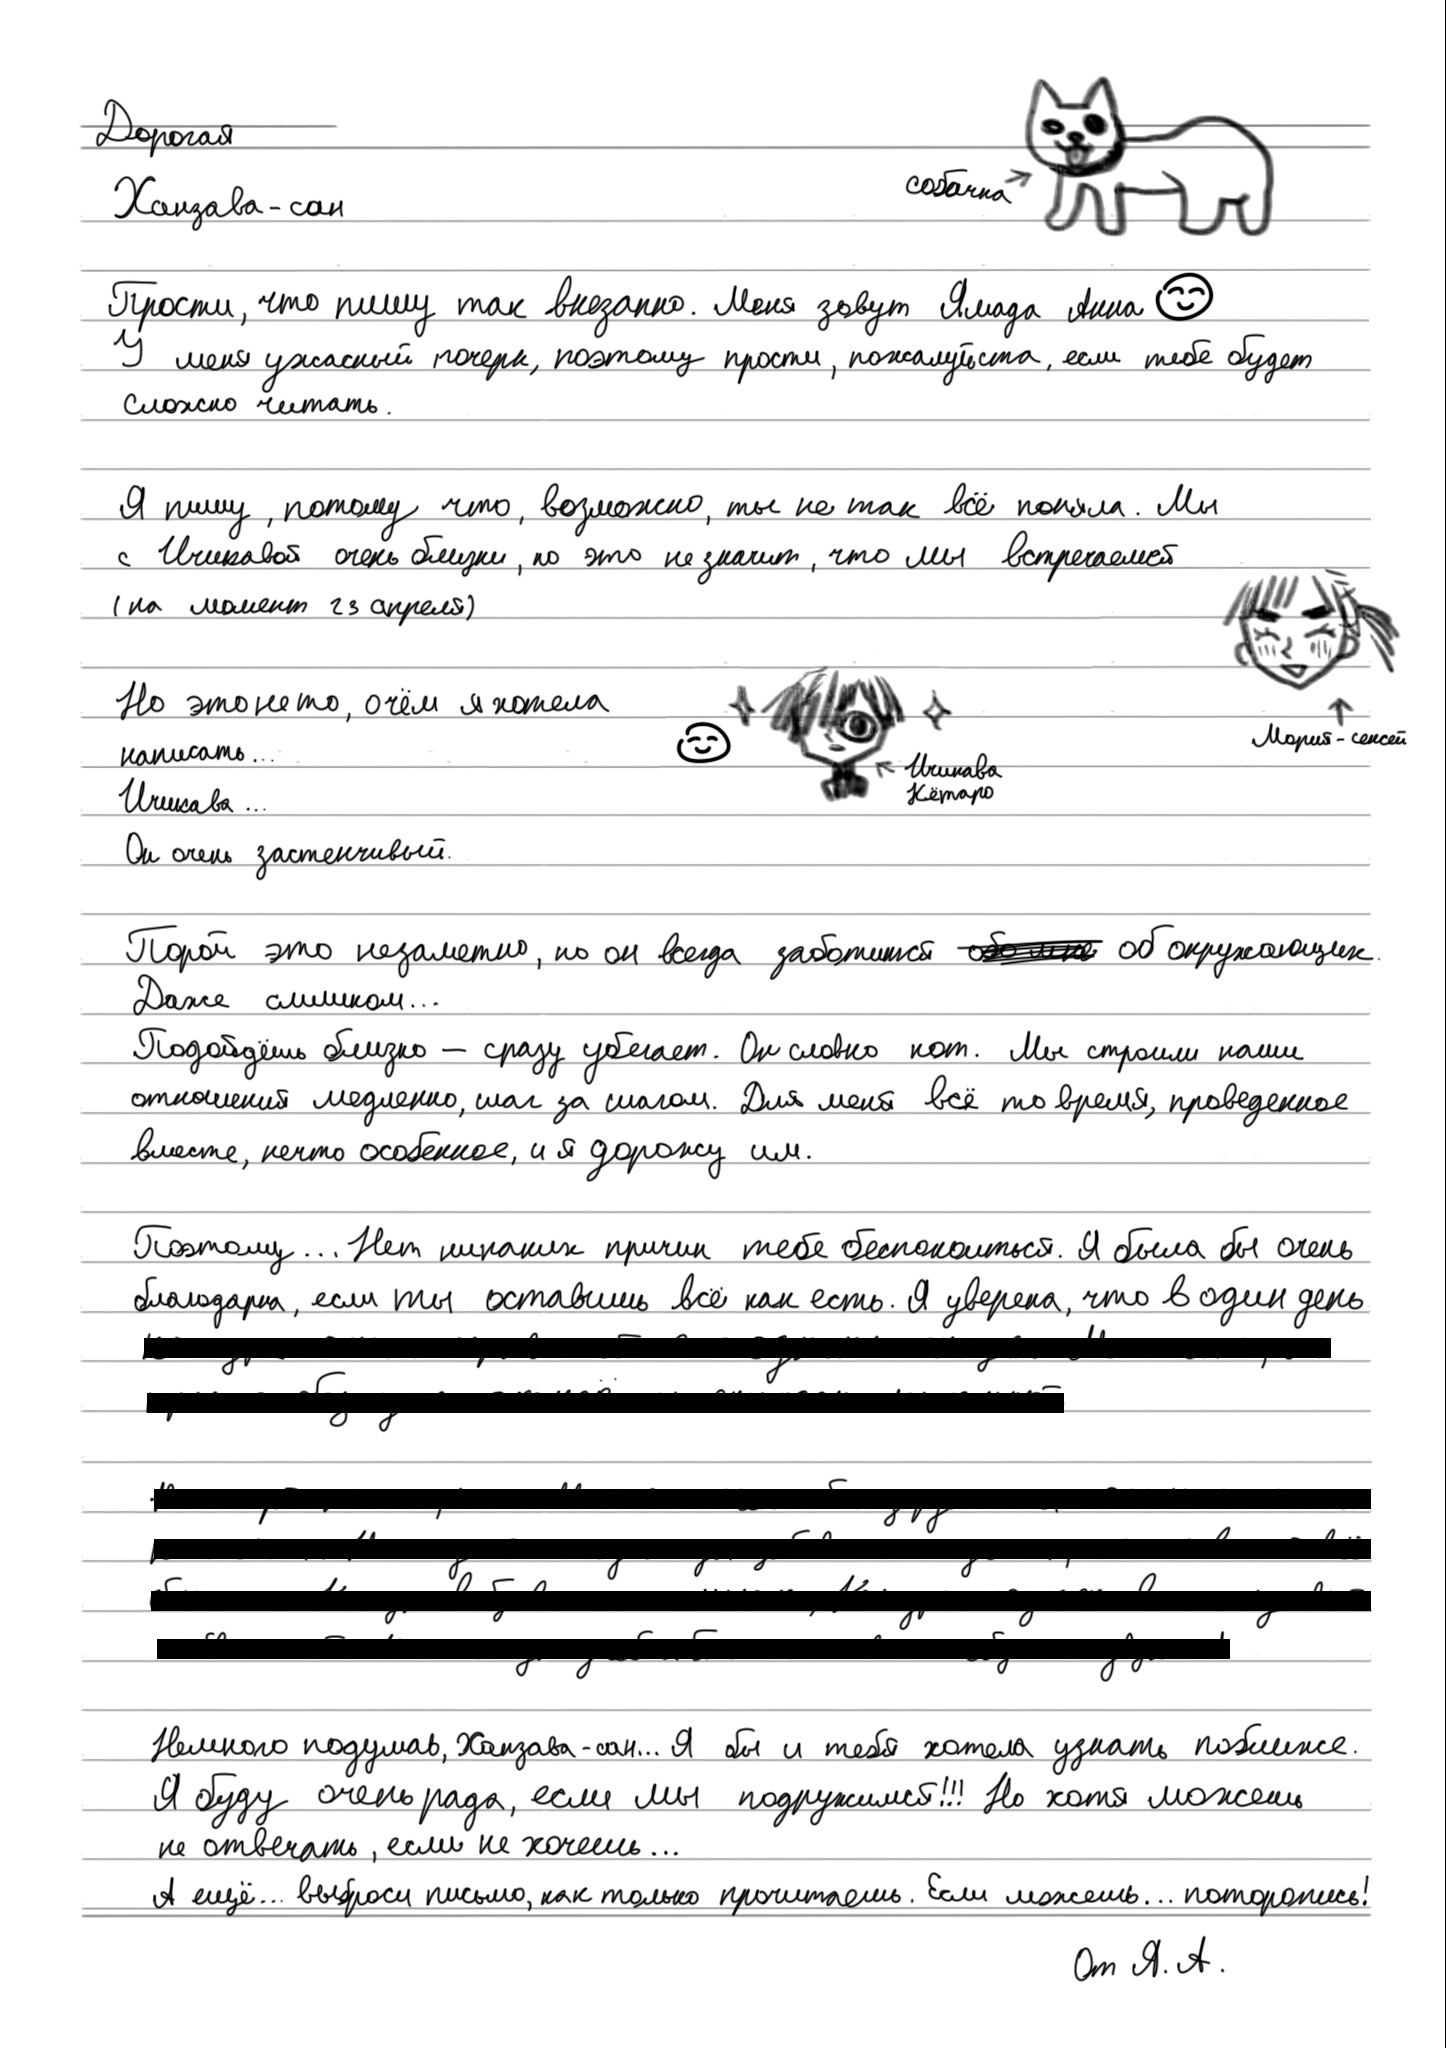 Дорогая
собачка
Ханзава-сан
Прости, что пишу так внезапно. Меня зовут Ямада Анна
У меня ужасный почерк, поэтому прости, пожалуйста, если тебе будет
сложно читать.
Я пишу, потому что, возможно, ты не так всё поняла. Мы
с Ичикавой очень близки, но это не значит, что мы встречаемся
(на момент 23 апреля)
Мория-сенсей
Но это не то, о чём я хотела
написать...
Ичикава
Кётаро
Ичикава...
Он очень застенчивый.
Порой это незаметно, но он всегда заботится обо мне об окружающих.
Даже слишком...
Подойдёшь близко — сразу убегает. Он словно кот. Мы строили наши
отношения медленно, шаг за шагом. Для меня всё то время, проведенное
вместе, нечто особенное, и я дорожу им.
Поэтому... Нет никаких причин тебе беспокоиться. Я была бы очень
благодарна, если ты оставишь всё как есть. Я уверена, что в один день
Немного подумав, Ханзава-сан... Я бы и тебя хотела узнать поближе.
Я буду очень рада, если мы подружимся!!! Но хотя можешь
не отвечать, если не хочешь...
А ещё... выброси письмо, как только прочитаешь. Если можешь... поторопись!
От Я. А.